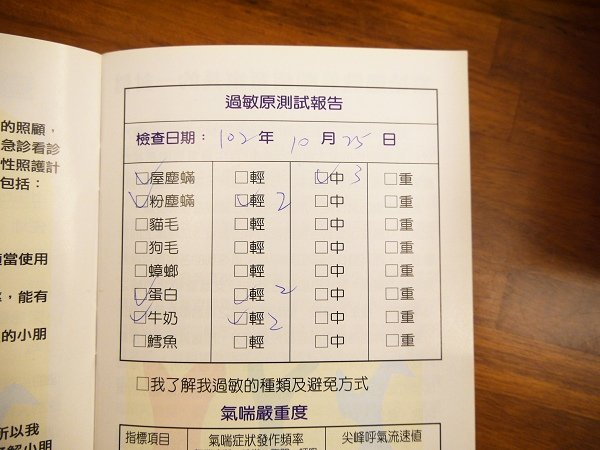 的照顧，
急診看診
性照護計
包括：
當使用
，能有
的小朋
所以我
過敏原測試報告
檢查日期： 102 年 10 月 25 日
☑屋塵蟎 □輕 ☑中 3 □重
☑粉塵蟎 ☑輕 2 □中 □重
□貓毛 □輕 □中 □重
□狗毛 □輕 □中 □重
□蟑螂 □輕 □中 □重
☑蛋白 ☑輕 2 □中 □重
☑牛奶 ☑輕 2 □中 □重
□鱈魚 □輕 □中 □重
□我了解我過敏的種類及避免方式
氣喘嚴重度
指標項目 氣喘症狀發作頻率 尖峰呼氣流速值